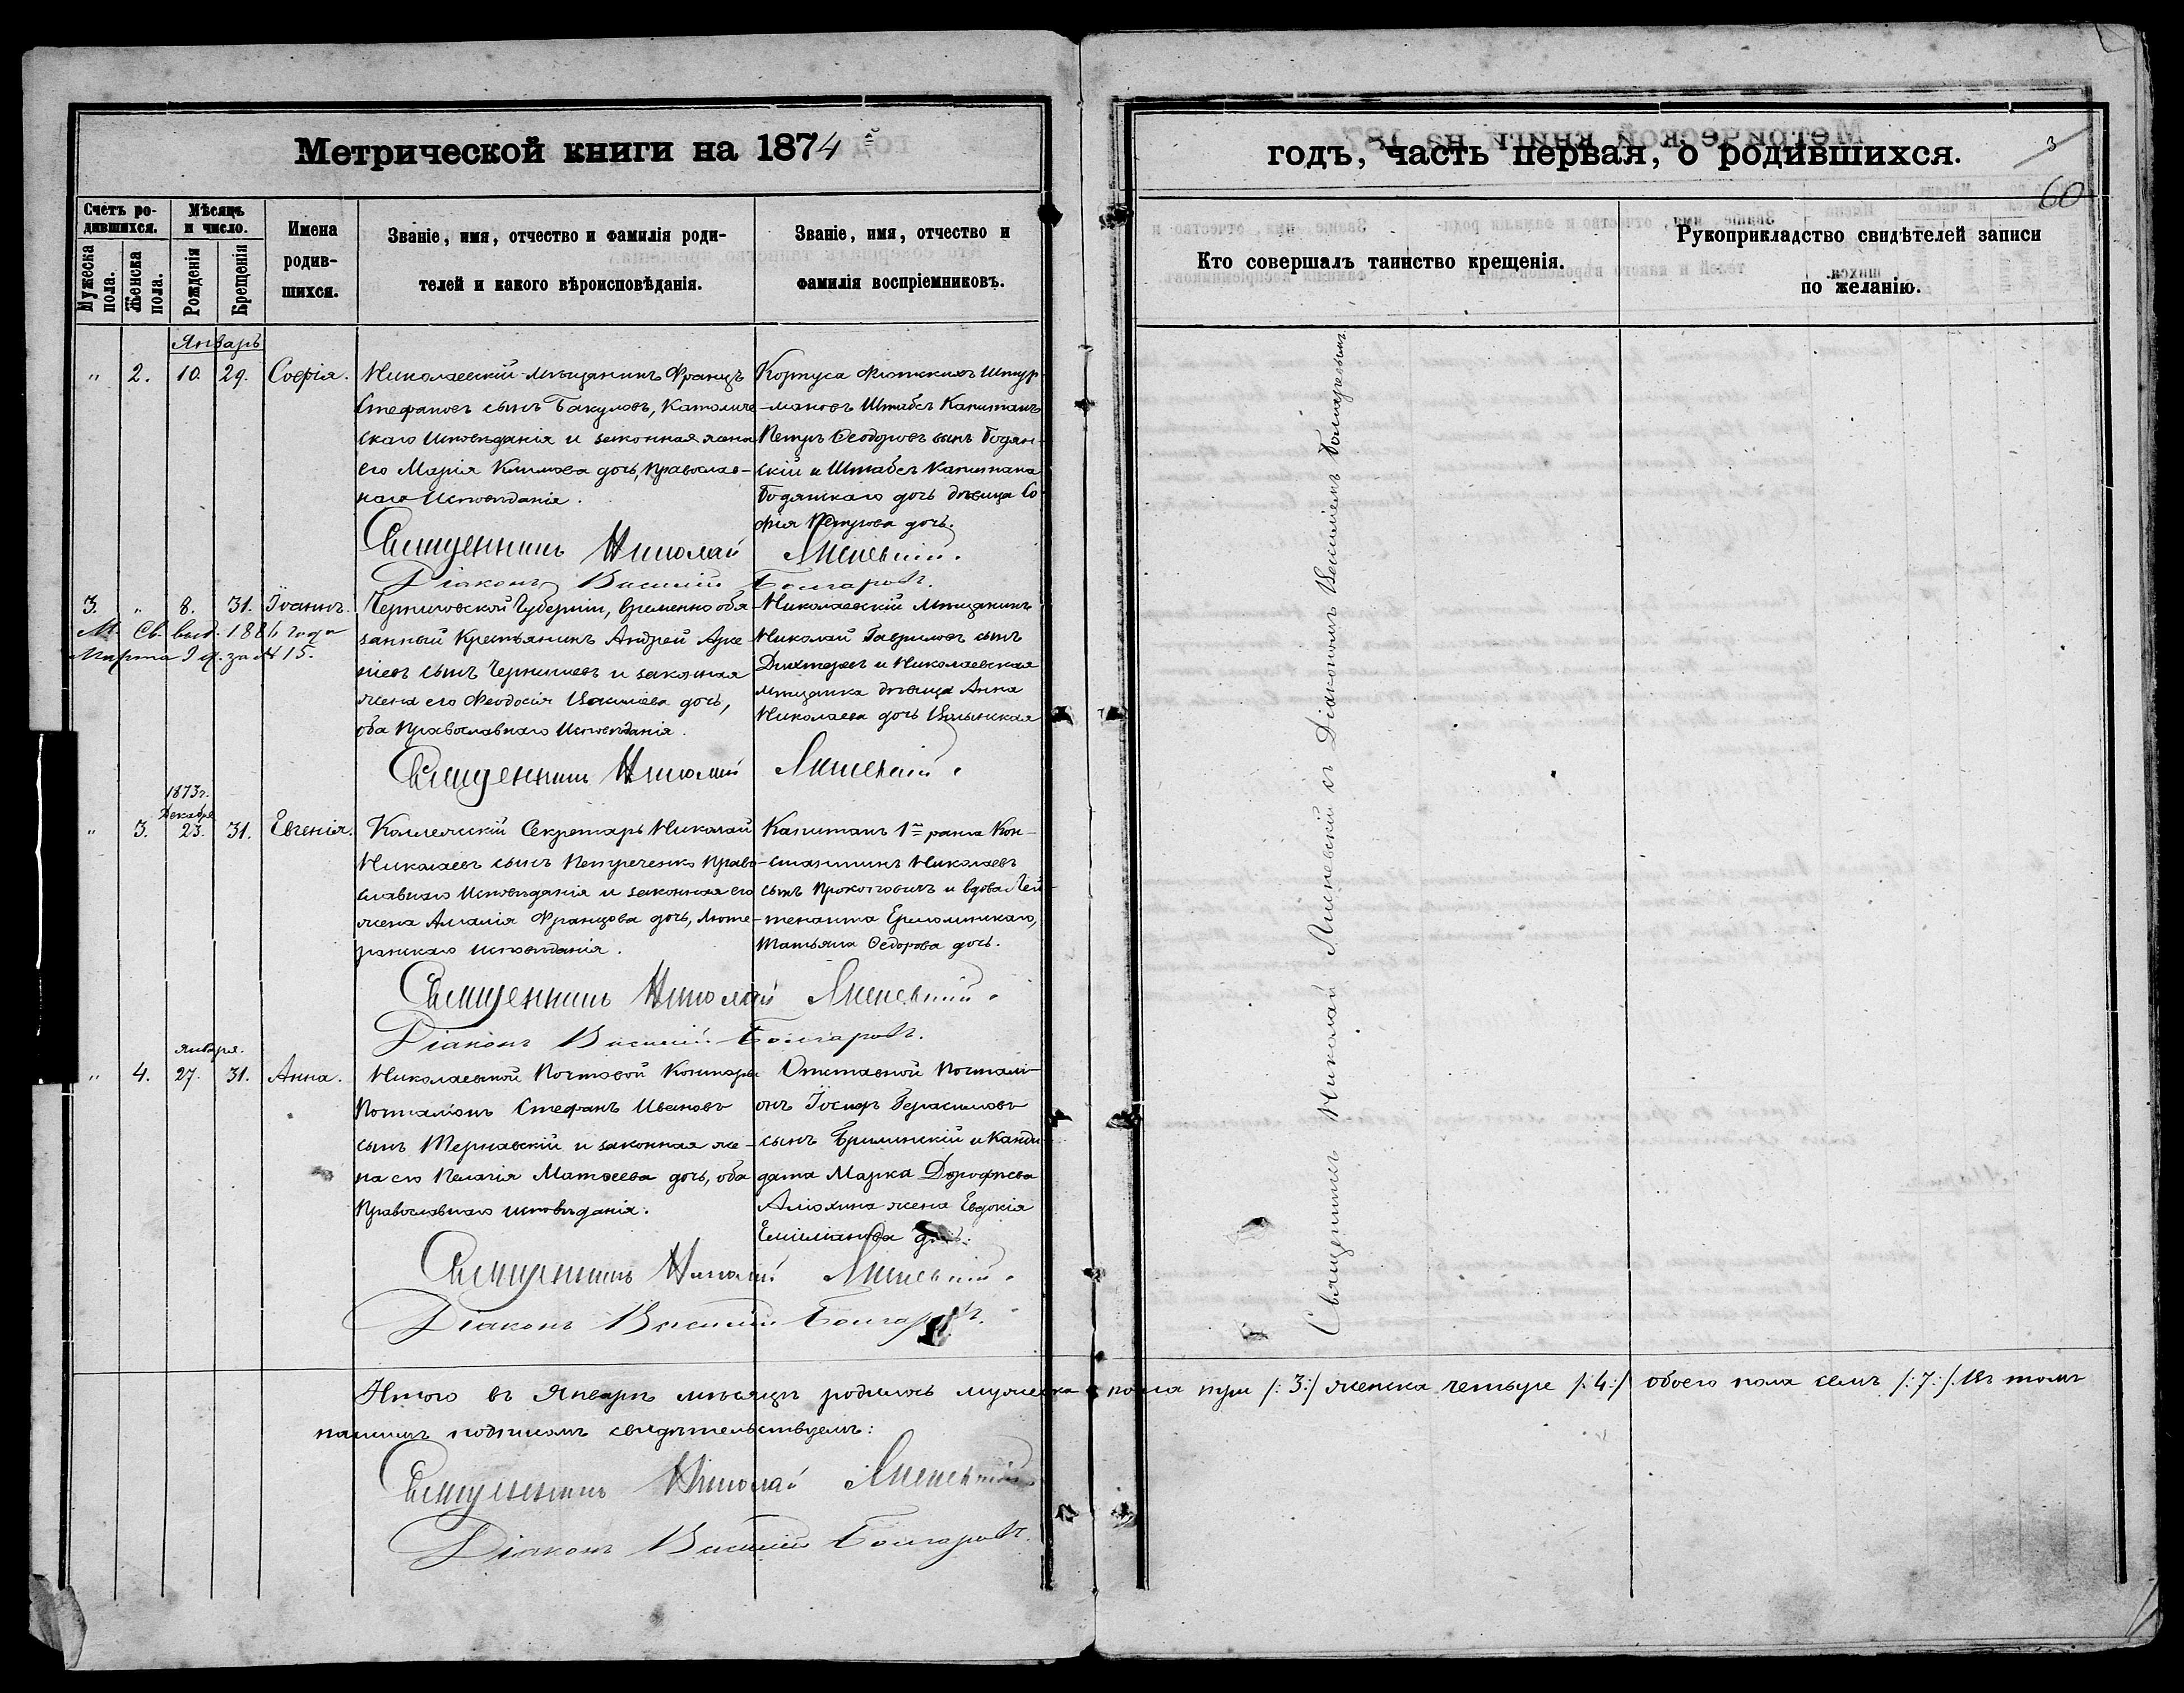 Метрической книги на 1874й
Счетъ родившихся.
Мѣсяцъ и число.
Мужеска пола.
Женска пола.
Рожденія
Крещенія
Имена родившихся.
Званіе, имя, отчество и фамилія родителей и какого вѣроисповѣданія.
Званіе, имя, отчество и фамилія воспріемниковъ.
Январь
" 2. 10. 29. Софія.
Николаевскій мѣщанинъ Францъ
Стефановъ сынъ Бакуловъ, Католиче
скаго Исповѣданія и законная жена
его Марія Климова дочь, Православ-
наго Исповѣданія.
Корпуса Флотскихъ Штур-
мановъ Штабсъ Капитанъ
Петръ Ѳеодоровъ сынъ Бодян-
скій и Штабсъ Капитана
Бодянскаго дочь дѣвица Со-
фія Петрова дочь.
Священникъ Николай
Діаконъ Василій Болгаровъ.
3. " 8. 31. Іоаннъ.
М. Св. выд. 1886 года
Марта 9 д. за № 15.
Черниговской Губерніи, временно обя
занный Крестьянинъ Андрей
сынъ и законная
жена его Феодосія дочь,
оба Православнаго Исповѣданія.
Николаевскій Мѣщанинъ
Николай Гавриловъ сынъ
Дихтяревъ и Николаевская
мѣщанка дѣвица Анна
Николаева дочь Волынская
Священникъ Николай
1873г.
Декабря
" 3. 23. 31. Евгенія.
Коллежскій Секретарь Николай
Николаевъ сынъ Петреченко Право
славнаго Исповѣданія и законная его
жена Амалія Францова дочь, Люте-
ранскаго исповѣданія.
Капитанъ 1го ранга Кон-
стантинъ Николаевъ
сынъ Прокоповичъ и вдова Лей-
тенанта Ермолинскаго,
Татьяна Ѳедорова дочь.
Священникъ Николай
Діаконъ Василій Болгаровъ.
января.
" 4. 27. 31. Анна.
Николаевской Почтовой Конторы
Почталіонъ Стефанъ Ивановъ
сынъ Тернавскій и законная же-
на его Пелагія Матѳеева дочь, оба
Православнаго исповѣданія.
Отставной Почтали-
онъ Іосифъ Герасимовъ
сынъ и Канди
дата Марка Дорофѣева
Алюхина жена Евдокія
Емиліанова дочь.
Священникъ Николай
Діаконъ Василій Болгаровъ.
Итого въ Январѣ мѣсяцѣ родилось мужеска пола три /:3:/ женска четыре /:4:/ обоего пола семь /:7:/. Въ томъ
нашимъ подписомъ свидѣтельствуемъ:
Священникъ Николай
Діаконъ Василій Болгаровъ.
годъ, часть первая, о родившихся.
3
60
Кто совершалъ таинство крещенія.
Рукоприкладство свидѣтелей записи по желанію.
Священникъ Николай съ Діакономъ Василіемъ Болгаровымъ